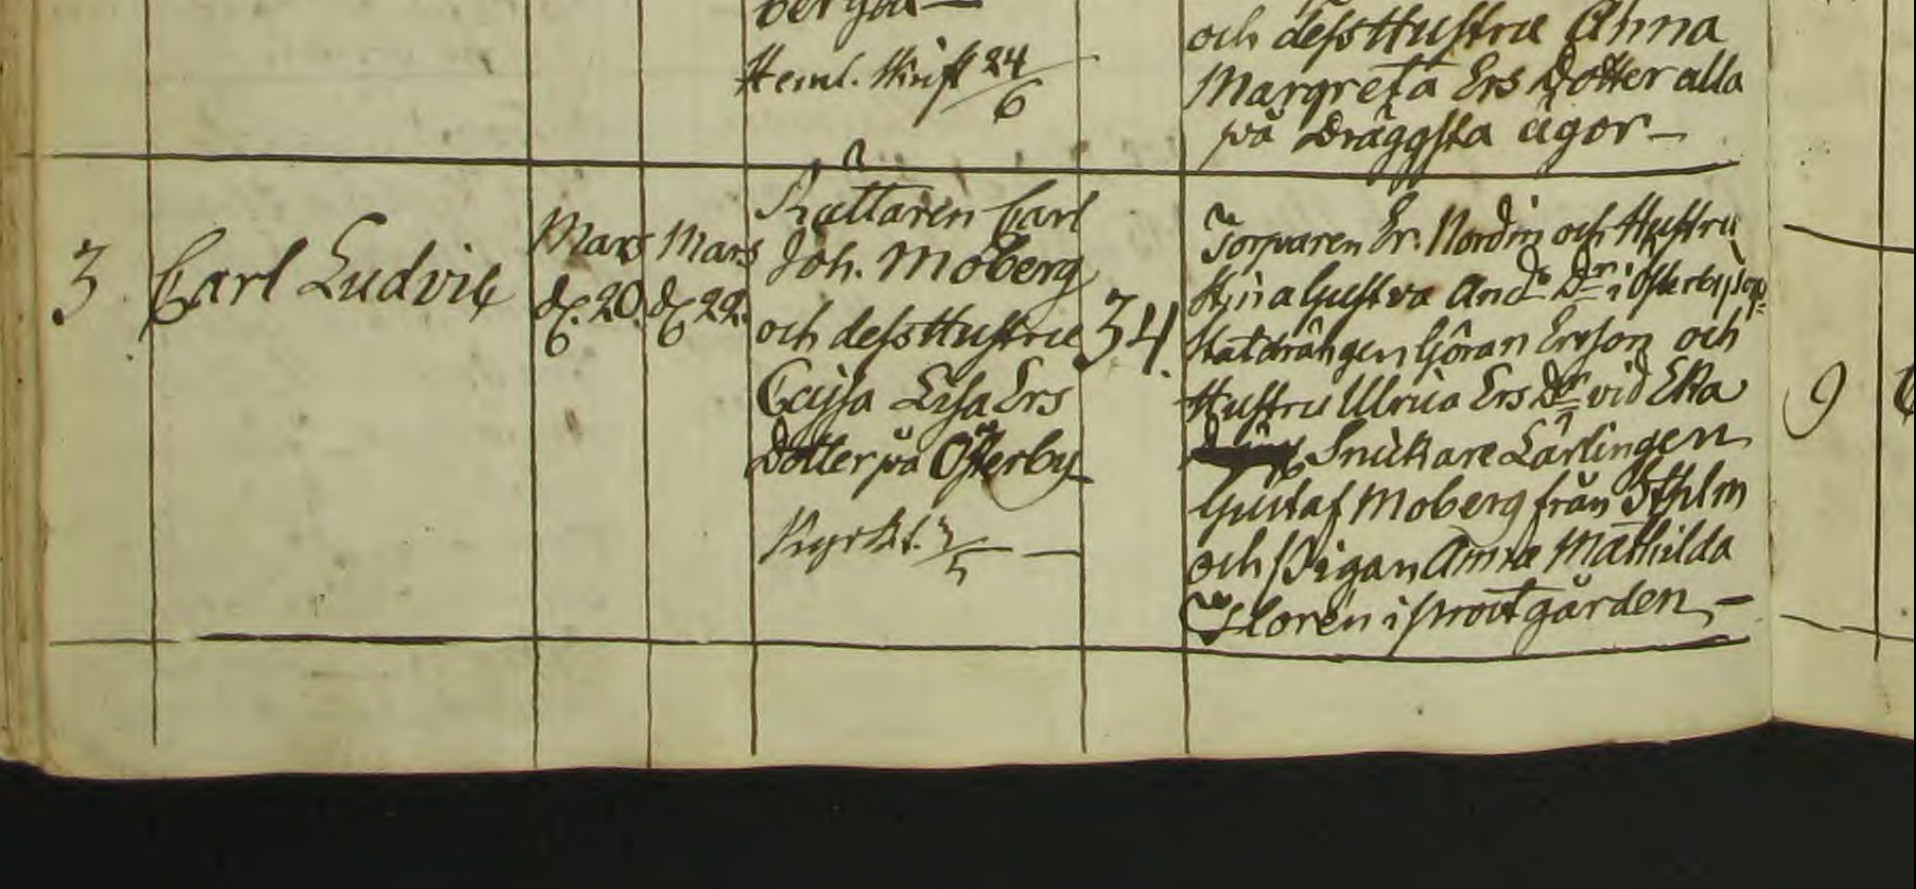 och dess Hustru Anna
Heml. Skrift 24/6
Margreta Ers Dotter alla
på Dräggsta ägor —
3
Carl Ludvik
Mars
d. 20.
Mars
d. 22.
Rättaren Carl
Joh. Moberg
och dess Hustru
Cajsa Lisa Ers
Dotter på Österby
Kyrkt. 3/5 —
34.
Torparen Er. Nordin och Hustru
Stina Gustva And. Dr i Österby
Statdrängen Göran Erson och
Hustru Ulrica Ers Dr vid Eka
Snickare Lärlingen
Gustaf Moberg från Sthlm
och Pigan Anna Mathilda
i prostgården —
9